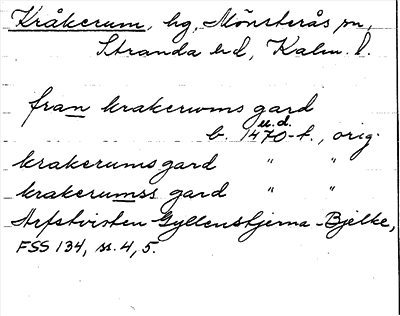 Kråkerum, hg, Mönsterås sn,
Stranda hd, Kalm. l.
fran krakerwms gard
u.d.
b. 1470-t., orig.
krakerumsgard " "
krakerumss gard " "
Arfstvisten Gyllenstjerna-Bjelke,
FSS 134, ss. 4, 5.